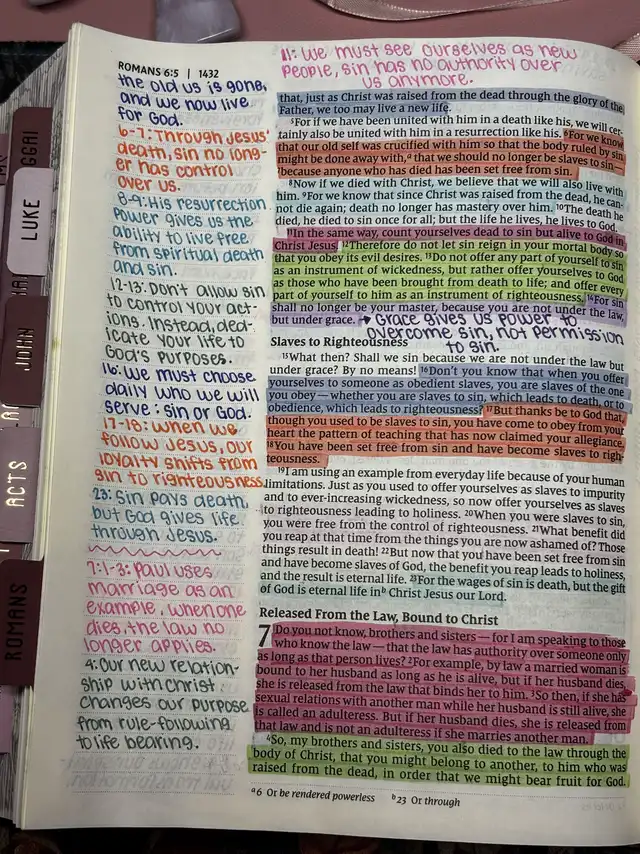 11: We must see ourselves as new
people, sin has no authority over
us anymore.
ROMANS 6:5 | 1432
the old us is gone,
and we now live
for God.
6-7: Through Jesus'
death, sin no long-
er has control
over us.
8-9: His resurrection
power gives us the
ability to live free
from spiritual death
and sin.
12-13: Don't allow sin
to control your act-
ions. Instead, ded-
icate your life to
God's purposes.
16: We must choose
daily who we will
serve: sin or God.
17-18: When we
follow Jesus, our
loyalty shifts from
sin to righteousness
23: Sin pays death,
but God gives life
through Jesus.
7:1-3: Paul uses
marriage as an
example, when one
dies, the law no
longer applies.
4: Our new relation-
ship with Christ
changes our purpose
from rule-following
to life bearing.
that, just as Christ was raised from the dead through the glory of the
Father, we too may live a new life.
5For if we have been united with him in a death like his, we will cer-
tainly also be united with him in a resurrection like his. 6For we know
that our old self was crucified with him so that the body ruled by sin
might be done away with,a that we should no longer be slaves to sin—
7because anyone who has died has been set free from sin.
8Now if we died with Christ, we believe that we will also live with
him. 9For we know that since Christ was raised from the dead, he can-
not die again; death no longer has mastery over him. 10The death he
died, he died to sin once for all; but the life he lives, he lives to God.
11In the same way, count yourselves dead to sin but alive to God in
Christ Jesus. 12Therefore do not let sin reign in your mortal body so
that you obey its evil desires. 13Do not offer any part of yourself to sin
as an instrument of wickedness, but rather offer yourselves to God
as those who have been brought from death to life; and offer every
part of yourself to him as an instrument of righteousness. 14For sin
shall no longer be your master, because you are not under the law,
but under grace.
Grace gives us power to
overcome sin, not permission
to sin.
Slaves to Righteousness
15What then? Shall we sin because we are not under the law but
under grace? By no means! 16Don't you know that when you offer
yourselves to someone as obedient slaves, you are slaves of the one
you obey—whether you are slaves to sin, which leads to death, or to
obedience, which leads to righteousness? 17But thanks be to God that,
though you used to be slaves to sin, you have come to obey from your
heart the pattern of teaching that has now claimed your allegiance.
18You have been set free from sin and have become slaves to righ-
teousness.
19I am using an example from everyday life because of your human
limitations. Just as you used to offer yourselves as slaves to impurity
and to ever-increasing wickedness, so now offer yourselves as slaves
to righteousness leading to holiness. 20When you were slaves to sin,
you were free from the control of righteousness. 21What benefit did
you reap at that time from the things you are now ashamed of? Those
things result in death! 22But now that you have been set free from sin
and have become slaves of God, the benefit you reap leads to holiness,
and the result is eternal life. 23For the wages of sin is death, but the gift
of God is eternal life inb Christ Jesus our Lord.
Released From the Law, Bound to Christ
7 Do you not know, brothers and sisters—for I am speaking to those
who know the law—that the law has authority over someone only
as long as that person lives? 2For example, by law a married woman is
bound to her husband as long as he is alive, but if her husband dies,
she is released from the law that binds her to him. 3So then, if she has
sexual relations with another man while her husband is still alive, she
is called an adulteress. But if her husband dies, she is released from
that law and is not an adulteress if she marries another man.
4So, my brothers and sisters, you also died to the law through the
body of Christ, that you might belong to another, to him who was
raised from the dead, in order that we might bear fruit for God.
a6 Or be rendered powerless b23 Or through
GGAI
LUKE
JOHN
ACTS
ROMANS